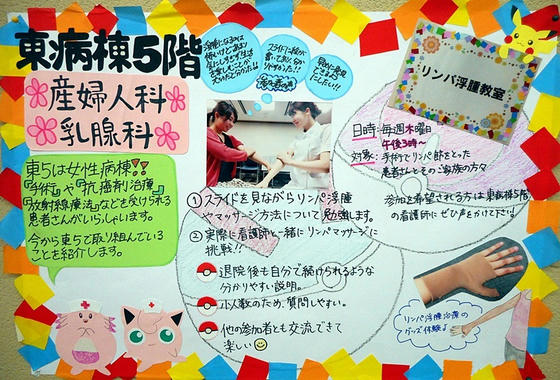 東病棟5階
産婦人科
乳腺科
東5は女性病棟!!
『手術』や『抗癌剤治療』
『放射線療法』などを受けられる
患者さんがいらっしゃいます。
今から東5で取り組んでいる
ことを紹介します。
スライドに絵が
書いてあり、分か
りやすかった!!
リンパ浮腫教室
日時:毎週木曜日
午後3時~
対象:手術でリンパ節をとった
患者さんとそのご家族の方々
参加を希望される方は東病棟5階
の看護師に ぜひ声をかけて下さい!
①スライドを見ながらリンパ浮腫
やマッサージ方法について勉強します。
②実際に看護師と一緒にリンパマッサージに
挑戦!!
退院後も自分で続けられるような
分かりやすい説明。
少人数のため、質問しやすい。
他の参加者とも交流できて
楽しい
リンパ浮腫治療の
グッズ体験♪